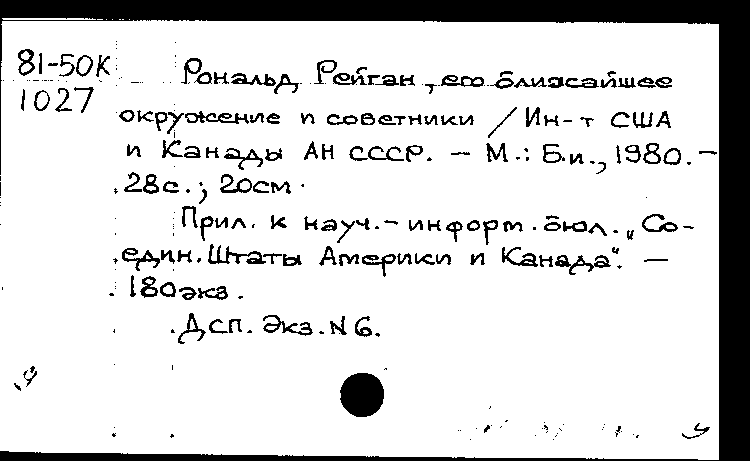 81-50К
1027
Рональд Рейган, его ближайшее
окружение и советники / Ин-т США
и Канады АН СССР. - М.: Б.и., 1980. -
28с.; 20см.
Прил. к науч.-информ. бюл. „Со-
един. Штаты Америки и Канада". -
180экз.
Дсп. Экз. N 6.